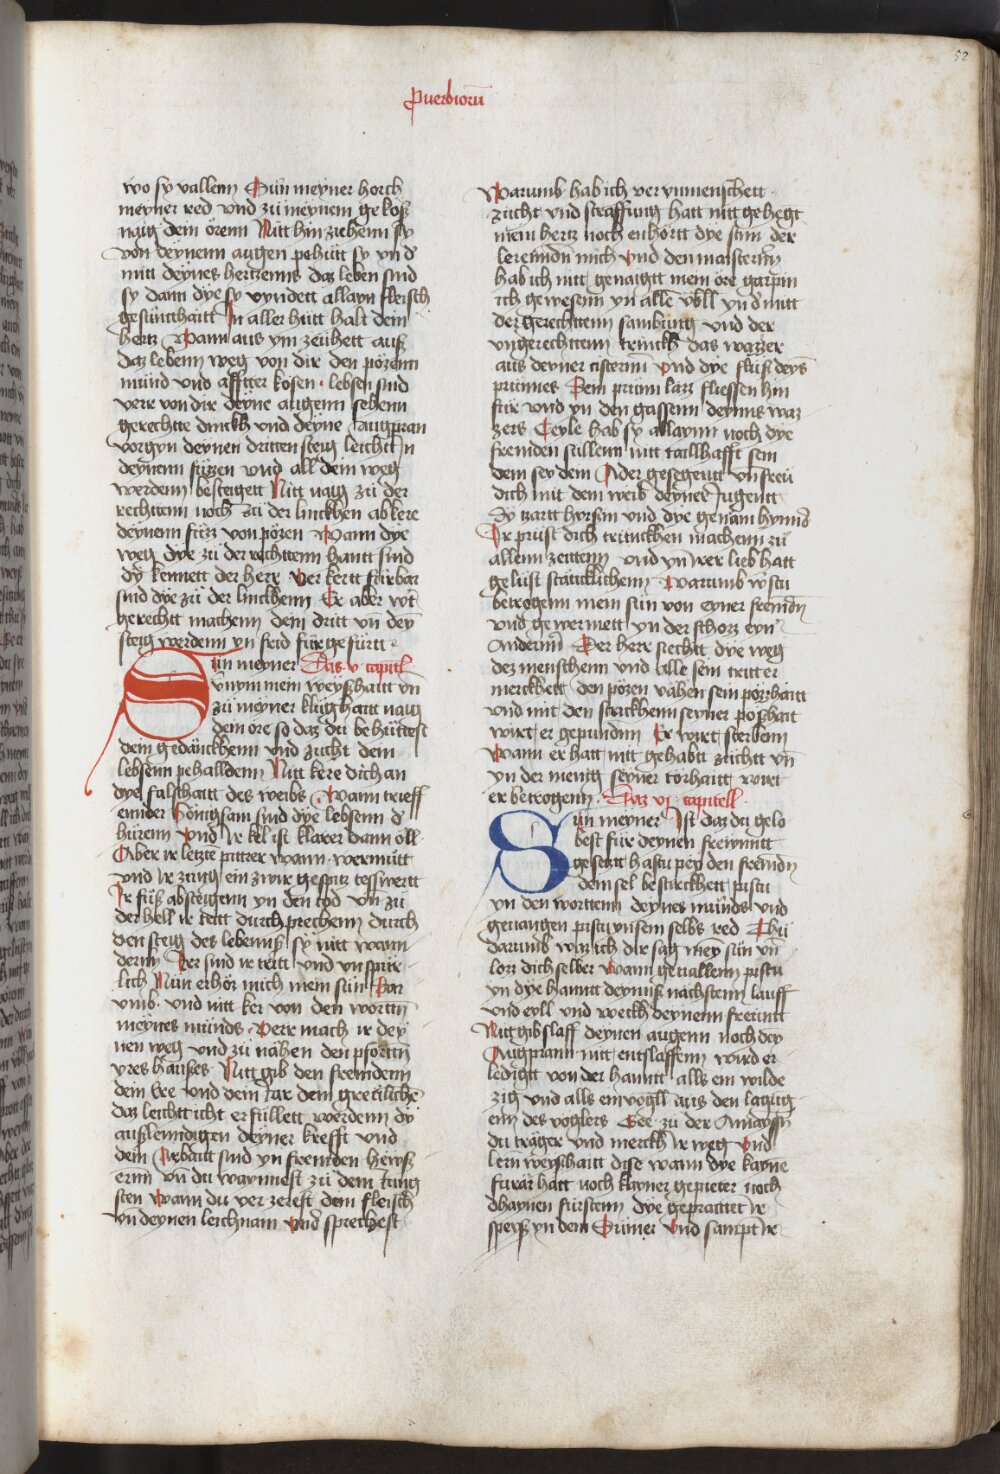 52
Puerbiorū
wo sy vallenn Sün meyner horch
meyner red vnd zü meynem gekoß
naig dein örenn Nitt hin ziehenn sy
von deynenn augen pehütt sy yn d
mitt deynes hertzenns daz leben sind
sy dann dye sy vyndett allayn fleisch
gesünthaitt In aller hütt halt dein
hertz Wann aus ym zeühett auß
daz lebenn weg von dir den pözenn
münd vnd affter kosen lebsen sind
verr von dir deyne augenn sehenn
gerechtte dinckh vnd deyne augpran
vorgyn deynen dritten steig leichtt In
deynenn füzzen vnd all dein weg
werdenn besteigett Nitt naig zü der
rechttenn noch zü der linckhen abkere
deynenn füzz von pözen Wann dye
weg dye zü der rechttenn hantt sind
dy kennett der herr Ver kertt fürbar
sind dye zü der linckhenn Er aber wt
gerechtt machenn dein dritt vn dey
steig werdenn yn frid für gefürtt
Sün meyner Das v capitl
vernym mein weyßhaitt vn
zü meyner klüghaitt naig
dein öre so daz du behüttest
dein gedänckhenn vnd zücht dein
lebsenn pehalldenn Nitt kere dich an
dye falschaitt des weibs Wann trieff
ennder hönigsam sind dye lebsenn d
hürenn vnd ir kel ist klarer dann öll
Aber ir letzte pittrer wann wermütt
vnd ir züng ein zwir gespitz tesswertt
Ir füß absteigenn yn den tod vn zü
der hell ir tritt durch prechenn durch
den steig des lebenns sy nitt wann
dernn Ver sind ir tritt vnd vnspür
lich Nün erhör mich mein sün Dar
vmb vnd nitt ker von den worttn
meynes münds Verr mach ir dey
nen weg vnd zü nähen den pforttn
yres haüses Nitt gib den fremdenn
dein Ere vnd dein Jar dem grewlichē
daz leichtt icht erfüllett werdenn dy
außlenndigen deyner krefft vnd
dein Arbaitt sind yn fremden hewß
ernn vn du waynnest zü dem Jung
sten Wann du verzerest dein fleisch
vn deynen leichnam vnd sprechest
Warumb hab ich ver vnmenschett
zücht vnd straffung hatt nitt gehegt
mein hertz noch enhörtt dye stim der
lerenndn mich vnd den maisternn
hab ich nitt genaigtt mein öre gar pin
ich gewesenn yn alle vbll yn d mitt
der gerechttenn sambüng vnd der
vngerechttenn trinckh das wazzer
aus deyner cisternn vnd dye flüß deys
prünnes Dein prünn lazz fliessen hin
für vnd yn den gassenn deynns waz
zers Teyle hab sy allaynn noch dye
fremden süllenn nitt taillhafft sein
dein sey dein Ader gesegentt vn freü
dich mit dem weib deyner Jugentt
Dy zartt hyrsinn vnd dye genäm hynnd
Ir prüst dich trünckhen machenn zü
allenn zeittenn vnd yn irer lieb hatt
gelüst stätticklichenn Warumb wstu
betrogenn mein sün von eyner fremdn
vnd gewermett yn der schozz eyn
Anderinn Der herr siechtt dye weg
dez menschenn vnd alle sein tritt er
merckhett den pözen vähen sein pözzhaitt
vnd mit den strickhenn seyner poßhaitt
wirt er gepündnn Er wirt sterbenn
Wann er hatt nitt gehabtt züchtt vn
yn der menig seyner törhaitt wirt
er betrogenn Daz vj capitell
Sün meyner Ist daz du gelo
best für deynen frewnntt
gesetzt hastu pey den fremdn
dein sel bestrickhett pistu
yn den worttenn deynes münds vnd
geuangen pistu yn sein selbs red Thü
darumb waz ich dir sag mey sün vn
lözz dich selber Wann geuallenn pistu
yn dye hanntt deynnß nachstenn lauff
vnd eyll vnd weckh deynenn freüntt
Nitt gib slaff deynen augenn noch dey
Augprann nitt entslaffenn wird er
ledigtt von der hanntt alls ein wilde
zig vnd alls ein vogll aus den lagüg
enn des voglers Gee zü der Amayssn
du träger vnd merckh ir weg vnd
lern weyßhaitt dise wann dye kayne
fürar hatt noch kayner gepieter noch
dhaynen fürstenn dye gepraittet ir
speyß yn dem Sümer vnd sampt ir